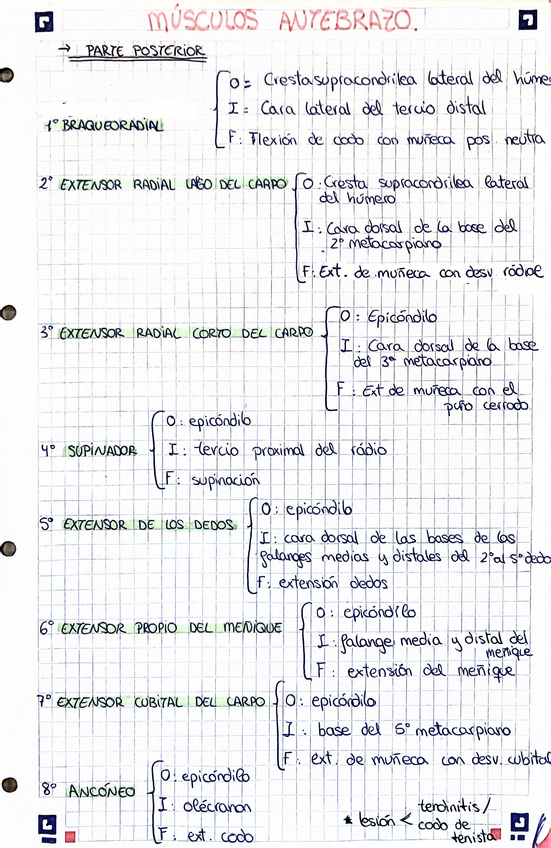 MÚSCULOS ANTEBRAZO.
→ PARTE POSTERIOR
1º BRAQUEORADIAL
O= Cresta supracondrilea lateral del húme
I= Cara lateral del tercio distal
F: Flexión de codo con muñeca pos. neutra
2º EXTENSOR RADIAL LAGO DEL CARPO
O: Cresta supracondrilea lateral
del húmero
I: Cara dorsal de la base del
2º metacarpiano
F: Ext. de muñeca con desv. rádial
3º EXTENSOR RADIAL CORTO DEL CARPO
O: Epicóndilo
I: Cara dorsal de la base
del 3º metacarpiano
F: Ext de muñeca con el
puño cerrado
4º SUPINADOR
O: epicóndilo
I: tercio proximal del rádio
F: supinación
5º EXTENSOR DE LOS DEDOS
O: epicóndilo
I: cara dorsal de las bases de las
falanges medias y distales del 2º al 5º dedo
F: extensión dedos
6º EXTENSOR PROPIO DEL MEÑIQUE
O: epicóndilo
I: falange media y distal del
meñique
F: extensión del meñique
7º EXTENSOR CUBITAL DEL CARPO
O: epicóndilo
I: base del 5º metacarpiano
F: ext. de muñeca con desv. cubital
8º ANCÓNEO
O: epicóndilo
I: olécranon
F: ext. codo
* lesión < tendinitis /
codo de
tenista